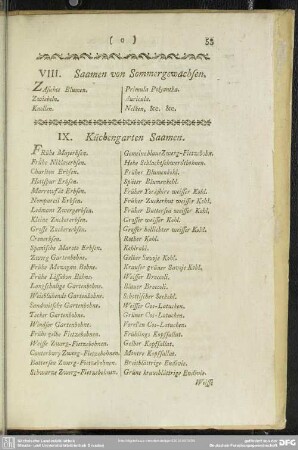 ( o )
55
VIII. Saamen von Sommergewächsen.
Zwiebeln.
Knollen.
Primula Polyantha.
Auricula.
Nelken, &c. &c.
IX. Küchengarten Saamen.
Frühe Erbsen.
Frühe Erbsen.
Charlton Erbsen.
Hotspur Erbsen.
Marrowfatt Erbsen.
Nompareil Erbsen.
Leadmans Zwergerbsen.
Kleine Zuckererbsen.
Grosse Zuckererbsen.
Kronerbsen.
Spanische Marcto Erbsen.
Zwerg Gartenbohne.
Frühe Mozagan Bohne.
Frühe Lissaboner Bohne.
Langschotige Gartenbohne.
Weissblühende Gartenbohne.
Sandwichsche Gartenbohne.
Toker Gartenbohne.
Windsor Gartenbohne.
Früh gelbe Fietzebohnen.
Weisse Zwerg-Fietzebohnen.
Canterbury Zwerg-Fietzebohnen.
Battersea Zwerg-Fietzebohnen.
Schwarze Zwerg-Fietzebohnen.
Gemeine blaue Zwerg-Fietzebohn.
Hohe
Früher Blumenkohl.
Später Blumenkohl.
Früher Yorkshire weisser Kohl.
Früher Zuckerhut weisser Kohl.
Früher Battersea weisser Kohl.
Grosser weisser Kohl.
Grosser weisser Kohl.
Rother Kohl.
Kohlrabi.
Gelber Savoje Kohl.
Krauser grüner Savoje Kohl.
Weisser Brocoli.
Blauer Brocoli.
Schottischer Seekohl.
Weisser Cos-Latuchen.
Grüner Cos-Latuchen.
Cos-Latuchen.
Frühlings Kopfsallat.
Gelber Kopfsallat.
Kopfsallat.
Breitblättrige Endivie.
Grüne krausblättrige Endivie.
Weisse